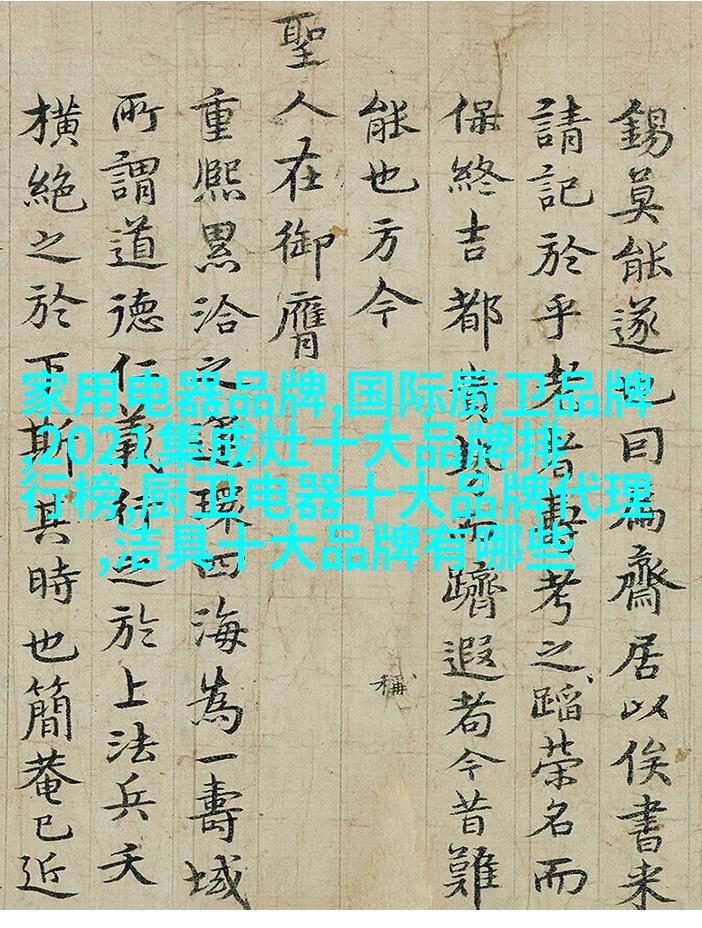 錫莫能遂也曰為齋居以俟書来
請記於乎老者壽考之蹈榮名而
保終吉都貴而躋遐耇今昔難
能也方今
稱
聖人在御膺
重熙累洽之運環四海為一壽域
所謂道德仁義行之於上法兵夭
橫絶之於下斯其時也簡菴已近
家用电器品牌,国际厨卫品牌
,2021集成灶十大品牌排
行榜,厨卫电器十大品牌代理
,洁具十大品牌有哪些